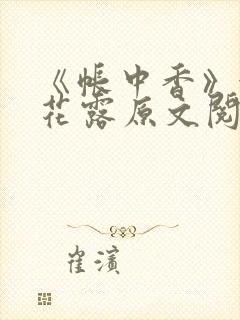 《帐中香》
花露原文阅
崔滨